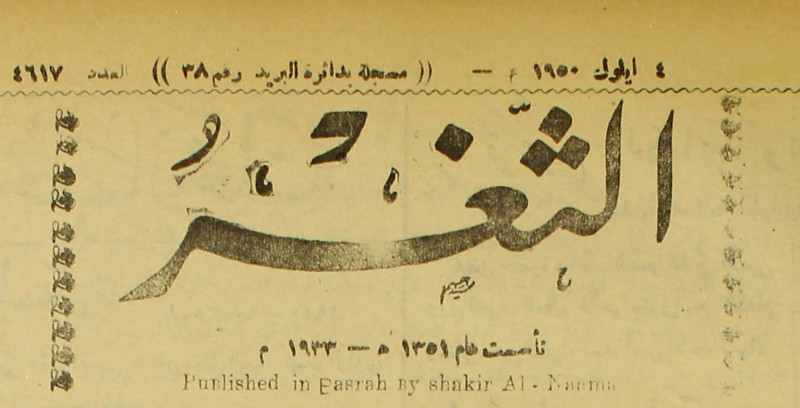 ٤ ايلول ١٩٥٠ م — (( مسجلة بدائرة البريد رقم ٣٨ )) العدد ٤٦١٧
الثَّغْرُ
تأسست عام ١٣٥١ ه — ١٩٣٣ م
Published in Basrah By shakir Al - Naama